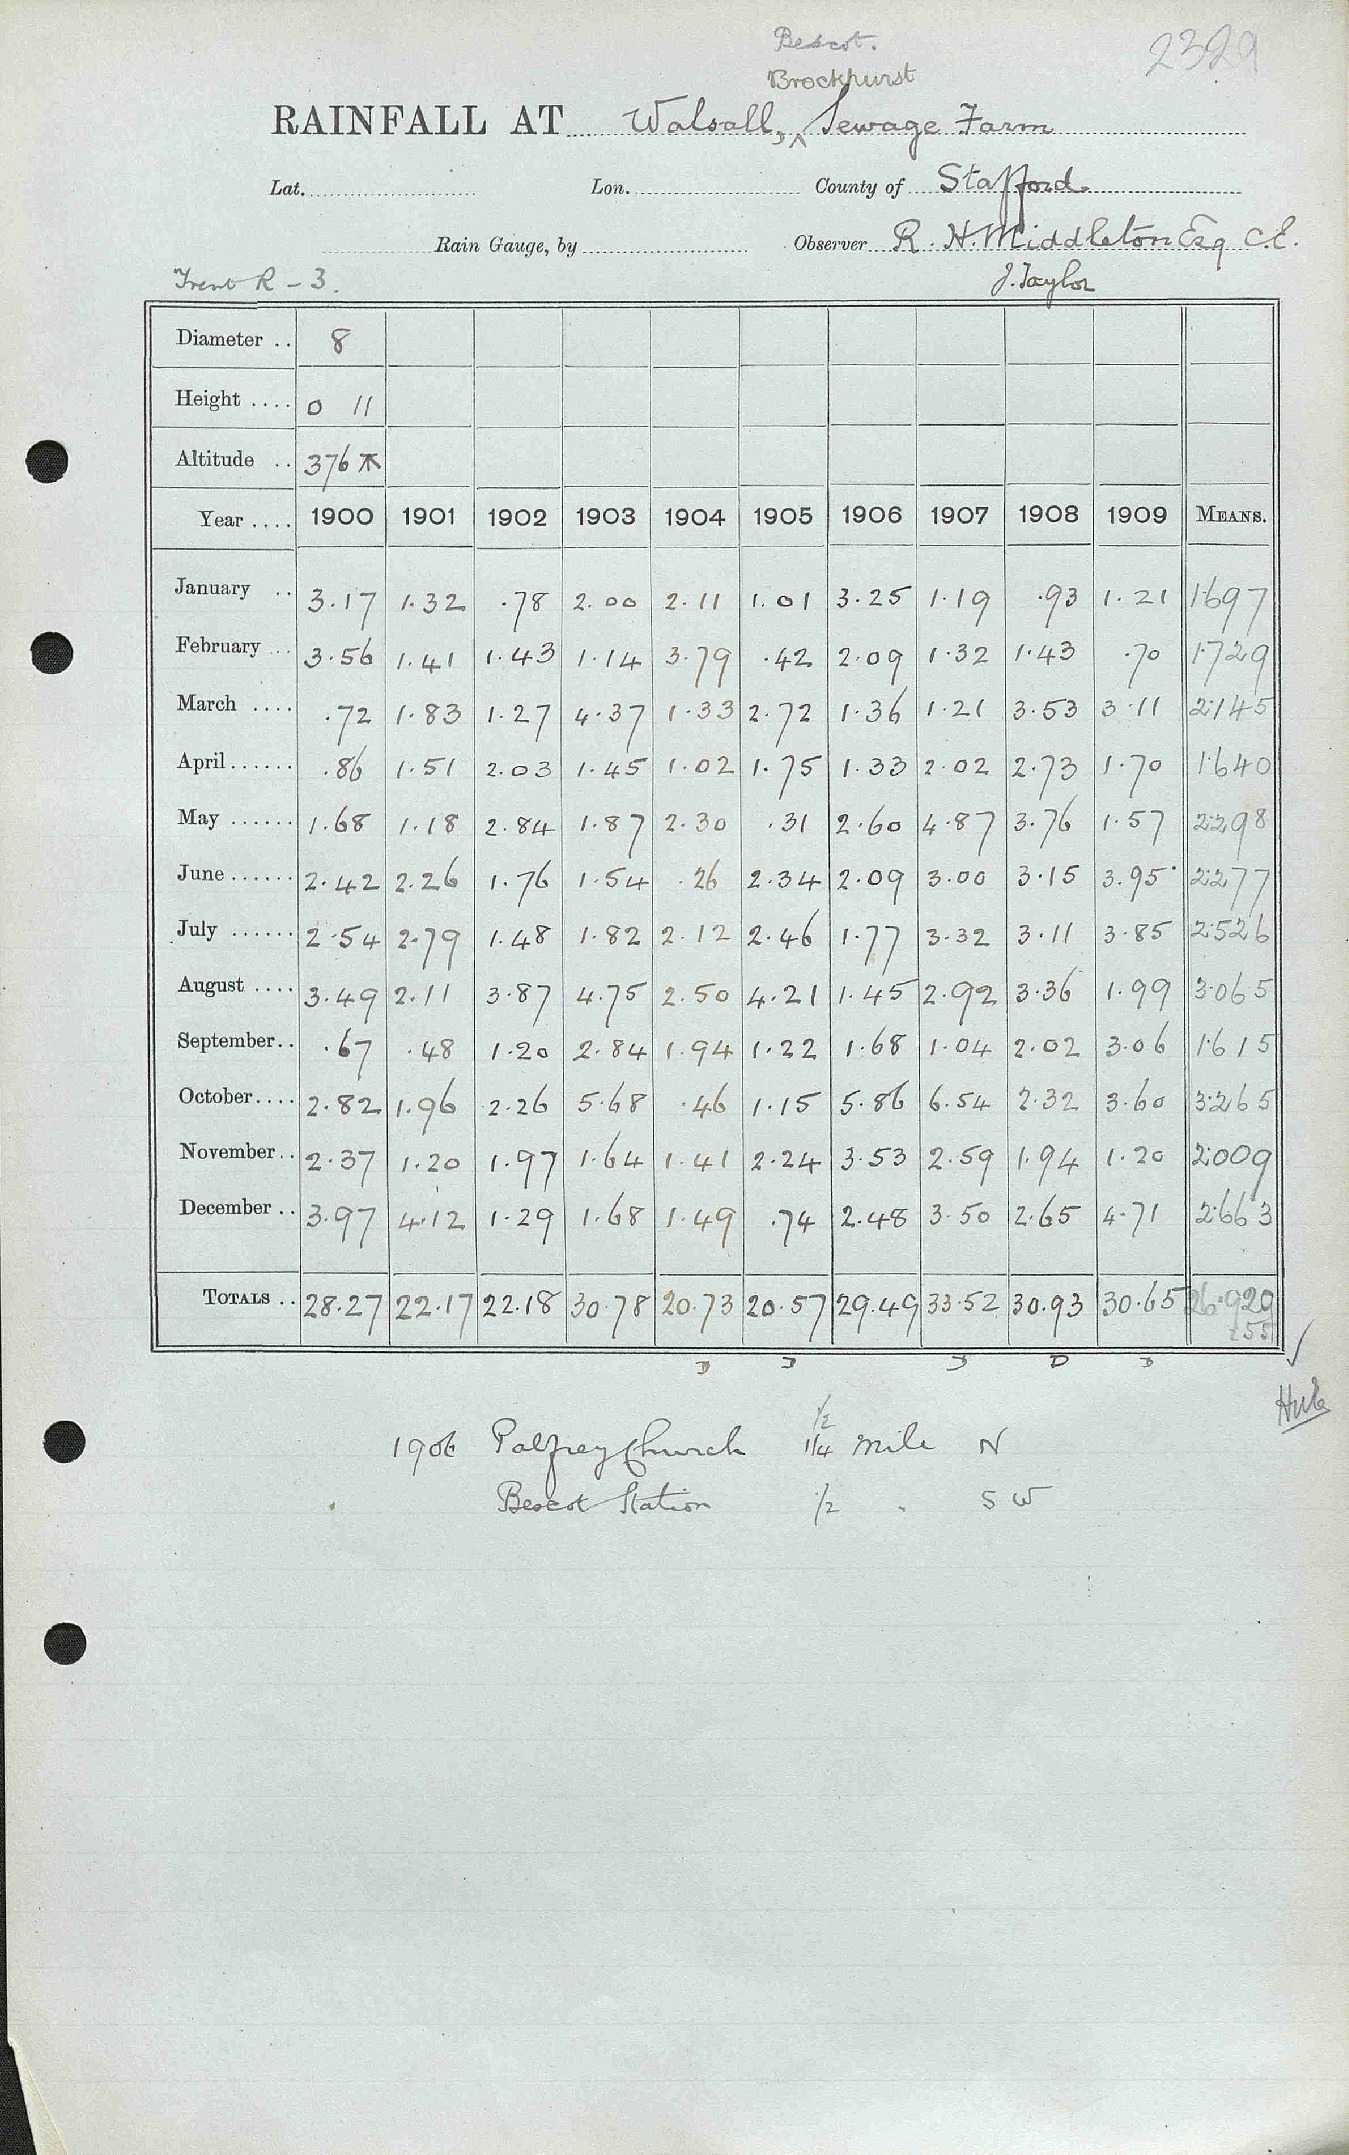 Bescot.
2329
Brockhurst
RAINFALL AT Walsall, ^ Sewage Farm
Lat. Lon. County of Stafford
Rain Gauge, by Observer R. H. Middleton Esq C.E.
Trent R - 3. J. Taylor
Diameter .. 8
Height .... 0 11
Altitude .. 376
Year .... 1900 1901 1902 1903 1904 1905 1906 1907 1908 1909 MEANS.
January .. 3.17 1.32 .78 2.00 2.11 1.01 3.25 1.19 .93 1.21 1.697
February .. 3.56 1.41 1.43 1.14 3.79 .42 2.09 1.32 1.43 .70 1.729
March .... .72 1.83 1.27 4.37 1.33 2.72 1.36 1.21 3.53 3.11 2.145
April ...... .86 1.51 2.03 1.45 1.02 1.75 1.33 2.02 2.73 1.70 1.640
May ...... 1.68 1.18 2.84 1.87 2.30 .31 2.60 4.87 3.76 1.57 2.298
June ...... 2.42 2.26 1.76 1.54 .26 2.34 2.09 3.00 3.15 3.95 2.277
July ...... 2.54 2.79 1.48 1.82 2.12 2.46 1.77 3.32 3.11 3.85 2.526
August .... 3.49 2.11 3.87 4.75 2.50 4.21 1.45 2.92 3.36 1.99 3.065
September.. .67 .48 1.20 2.84 1.94 1.22 1.68 1.04 2.02 3.06 1.615
October.... 2.82 1.96 2.26 5.68 .46 1.15 5.86 6.54 2.32 3.60 3.265
November.. 2.37 1.20 1.97 1.64 1.41 2.24 3.53 2.59 1.94 1.20 2.009
December .. 3.97 4.12 1.29 1.68 1.49 .74 2.48 3.50 2.65 4.71 2.663
TOTALS .. 28.27 22.17 22.18 30.78 20.73 20.57 29.49 33.52 30.93 30.65 26.929
255
D D D D D
1/2
1906 Palfrey Church 1/4 mile N
Bescot Station 1/2 " S W